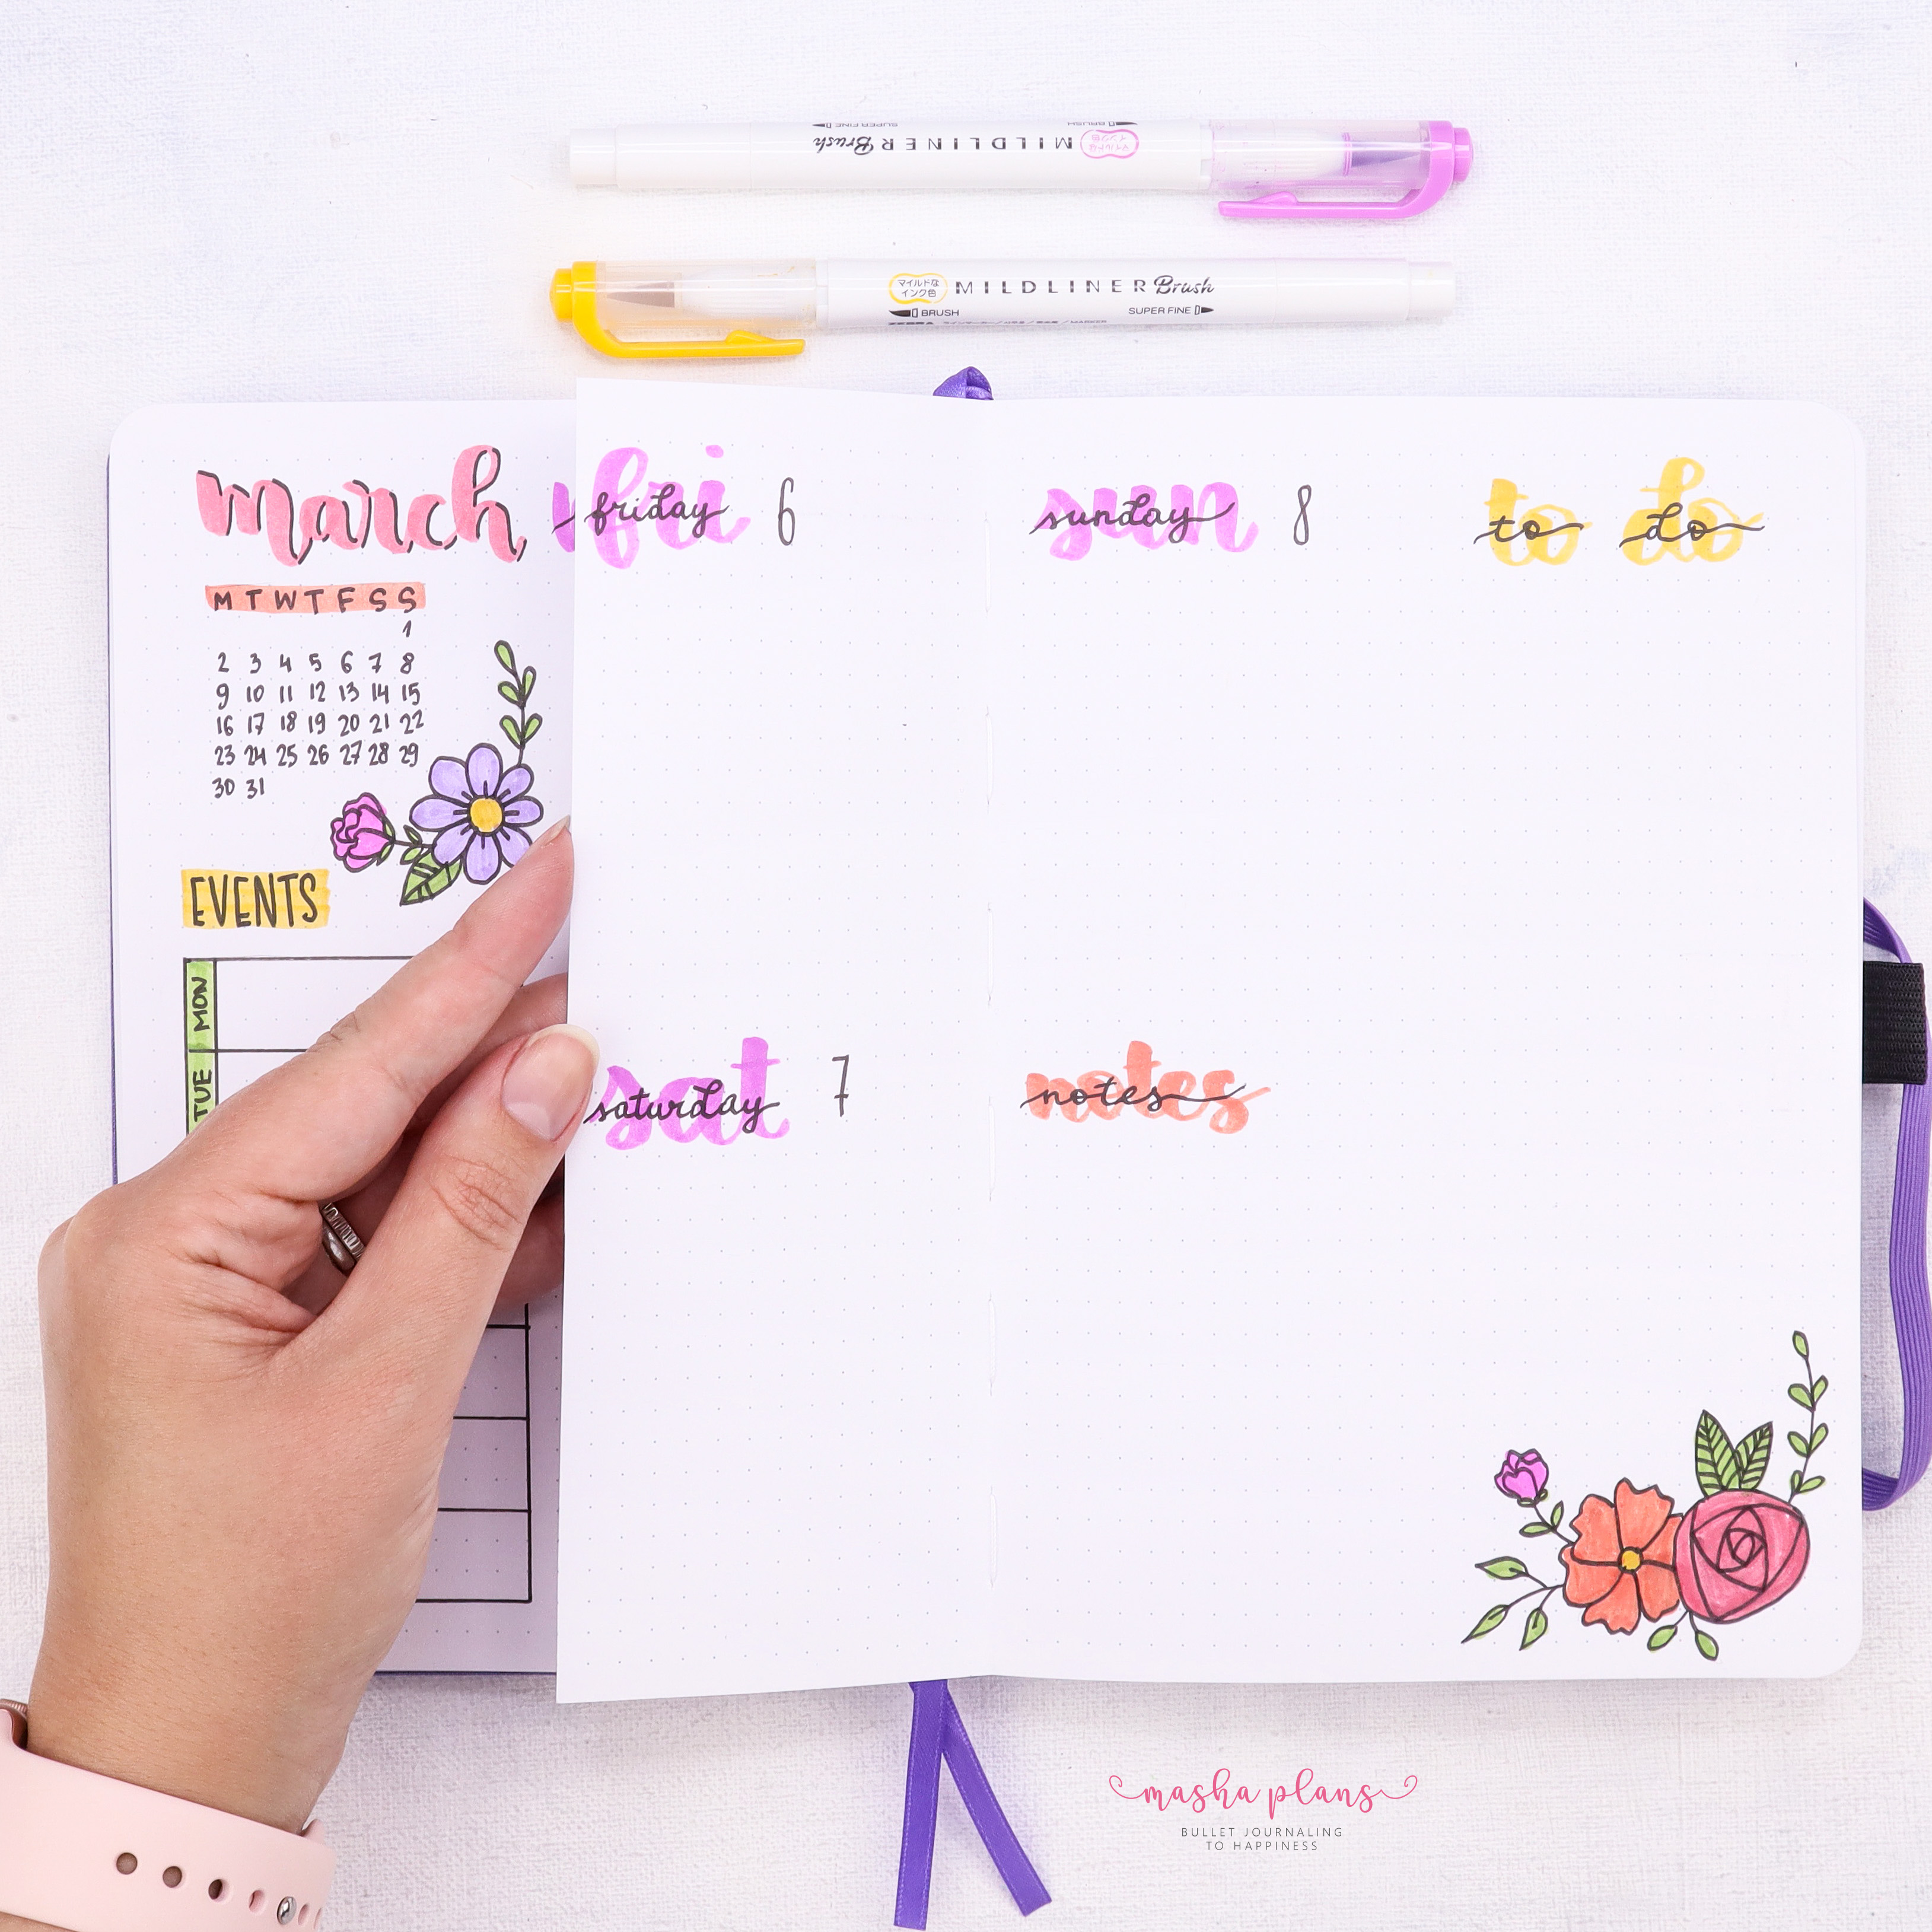 SUPER FINE BRUSH
MILDLINER Brush マイルドな インク色
マイルドな インク色 MILDLINER Brush
BRUSH SUPER FINE
ZEBRA
march
M T W T F S S
1
2 3 4 5 6 7 8
9 10 11 12 13 14 15
16 17 18 19 20 21 22
23 24 25 26 27 28 29
30 31
EVENTS
MON
TUE
fri friday 6
sat saturday 7
sun sunday 8
notes notes
to do to do
masha plans
BULLET JOURNALING
TO HAPPINESS